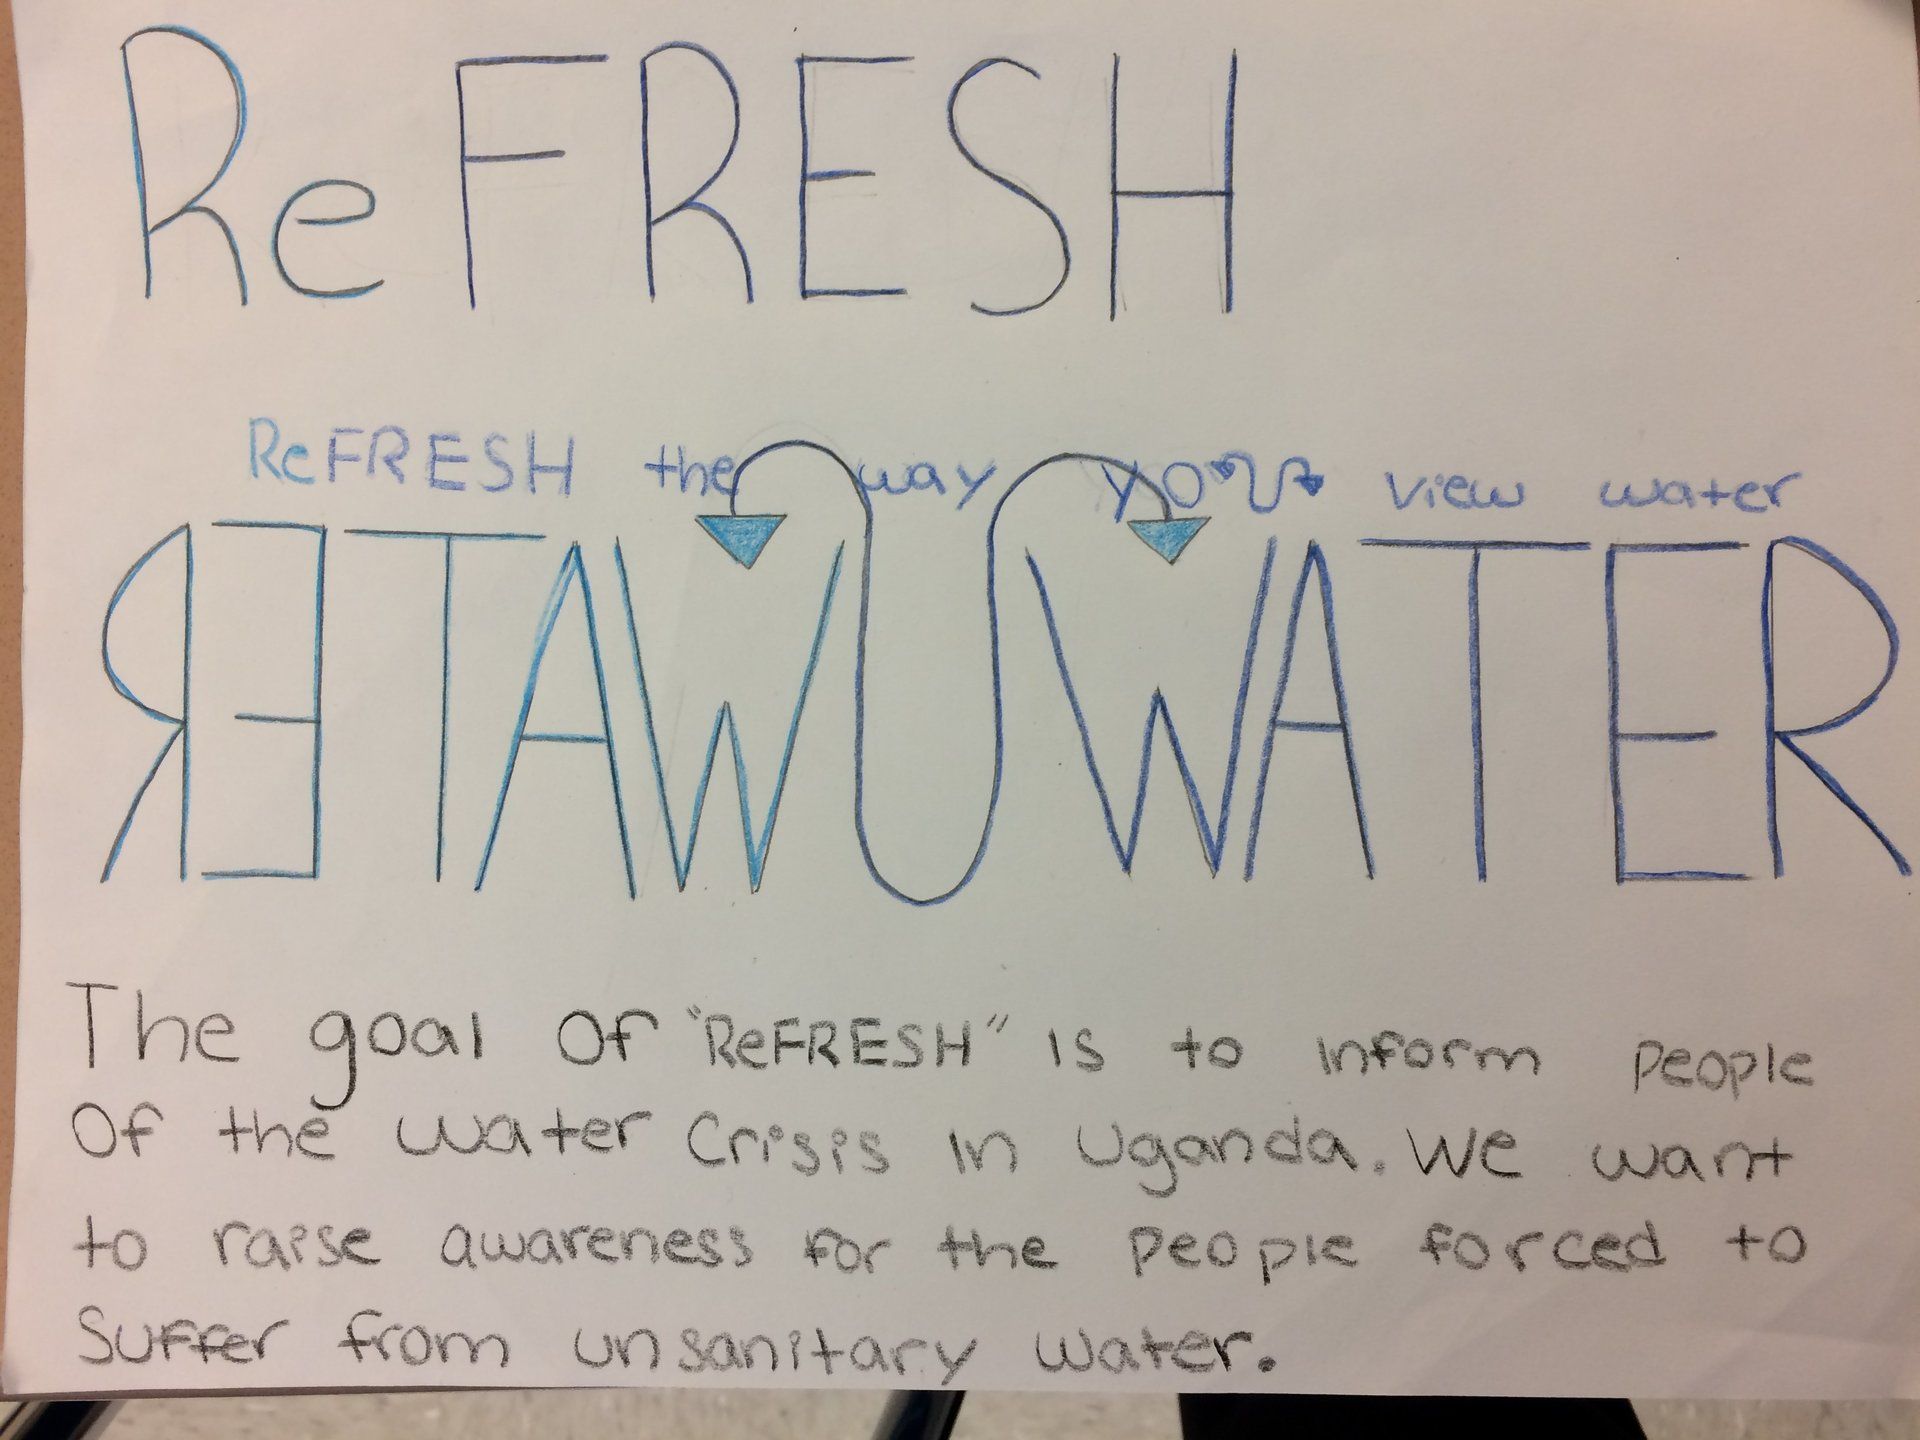 ReFRESH
ReFRESH the way you view water
RETAW U WATER
The goal of "ReFRESH" is to inform people
Of the water Crisis in Uganda. We want
to raise awareness for the people forced to
Suffer from unsanitary water.